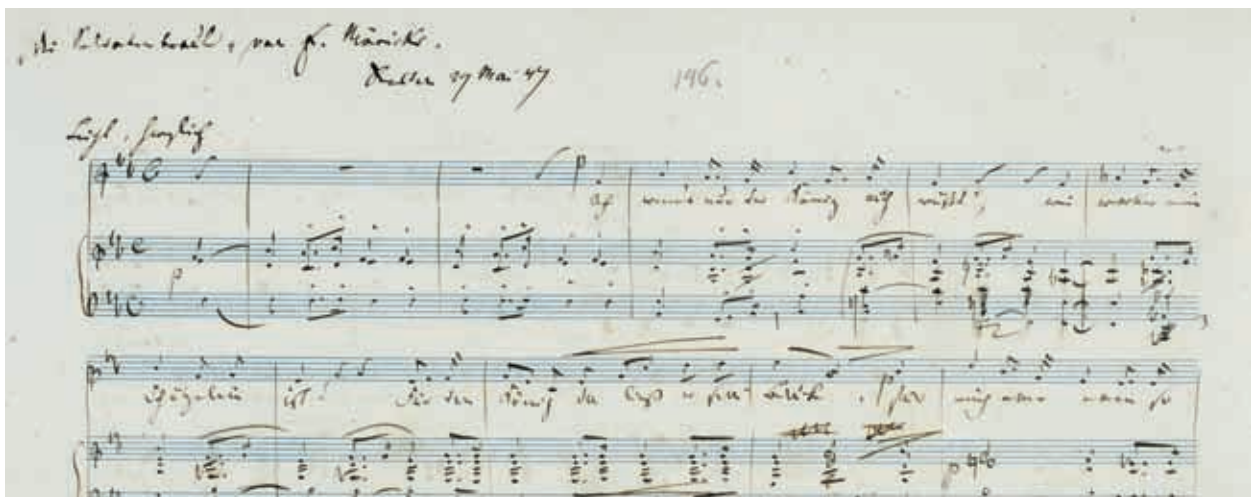 Die Soldatenbraut, von Mörike.
27 Mai 47
196.
herzlich
Ach wenn's nur der König auch wüßt', wie wacker mein
p
Schätzelein ist! Für den König da ließ er sein Blut, für mich aber eben so
p